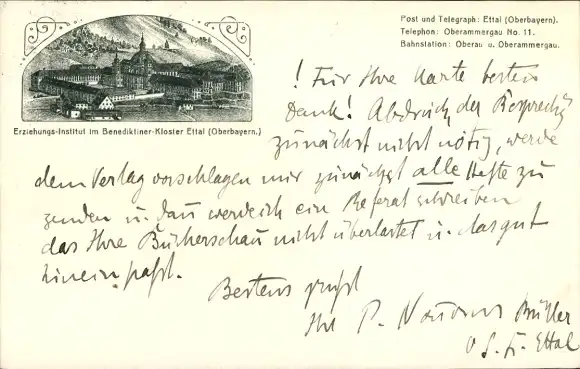 Post und Telegraph: Ettal (Oberbayern).
Telephon: Oberammergau No. 11.
Bahnstation: Oberau u. Oberammergau.
Erziehungs-Institut im Benediktiner-Kloster Ettal (Oberbayern.)
! Für Ihre Karte besten
Dank! Abdruck der
zunächst nicht nötig, werde
dem Verlag vorschlagen mir zunächst alle Hefte zu
senden u. dann werde ich ein Referat schreiben
das Ihre Bücherschau nicht überlastet u. das gut
hinein paßt.
Bestens grüßt
Ihr P. Müller
O. S. B. Ettal